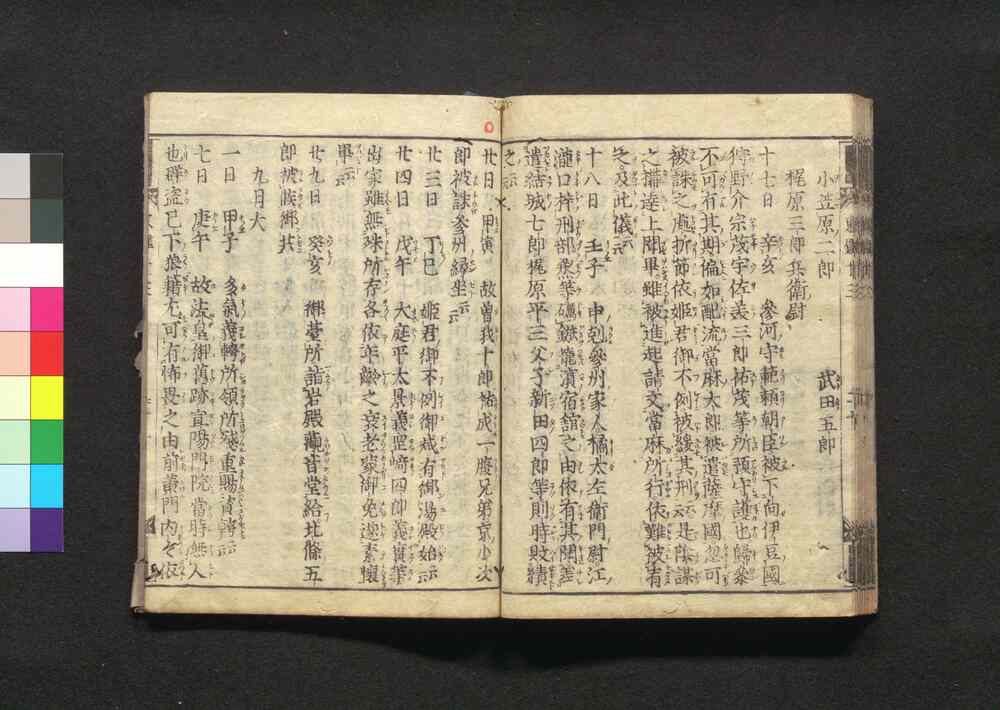 小笠原二郎　武田五郎
梶原三郎兵衛尉
十七日　辛亥　參河守範頼朝臣被下向伊豆國
狩野介宗茂宇佐美三郎祐茂等所預守護也歸參
不可有其期偏如配流當麻太郎被遣薩摩國忽可
被誅之處折節依姫君御不例被緩其刑云是陰謀
之搆達上聞畢雖被進起請文當麻所行依難被宥
之及此儀云
十八日　壬子　申剋參州家人橘太左衛門尉江
瀧口梓刑部丞等礪鏃籠濱宿舘之由依有其聞差
遣結城七郎梶原平三父子新田四郎等則時敗績
之云
廿日　甲寅　故曽我十郎祐成一腹兄弟京小次
郎被誅參州縁坐云
廿三日　丁巳　姫君御不例御减有御湯殿始云
廿四日　戊午　大庭平太景義罡﨑四郎義實等
出家雖無殊所存各依年齡之衰老蒙御免遂素懷
畢云
廿九日　癸亥　御臺所詣岩殿觀音堂給北條五
郎被候御共
九月大
一日　甲子　多氣義幹所領所職重賜資幹云
七日　庚午　故法皇御舊跡宜陽門院當時無人
也群盗已下狼籍尤可有怖畏之由前黄門内々被